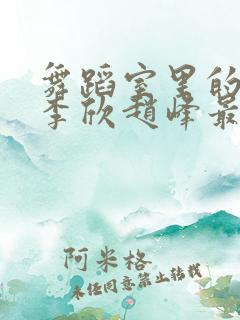 舞蹈室里的
李欣赵峰最
阿米格
未经同意禁止转载